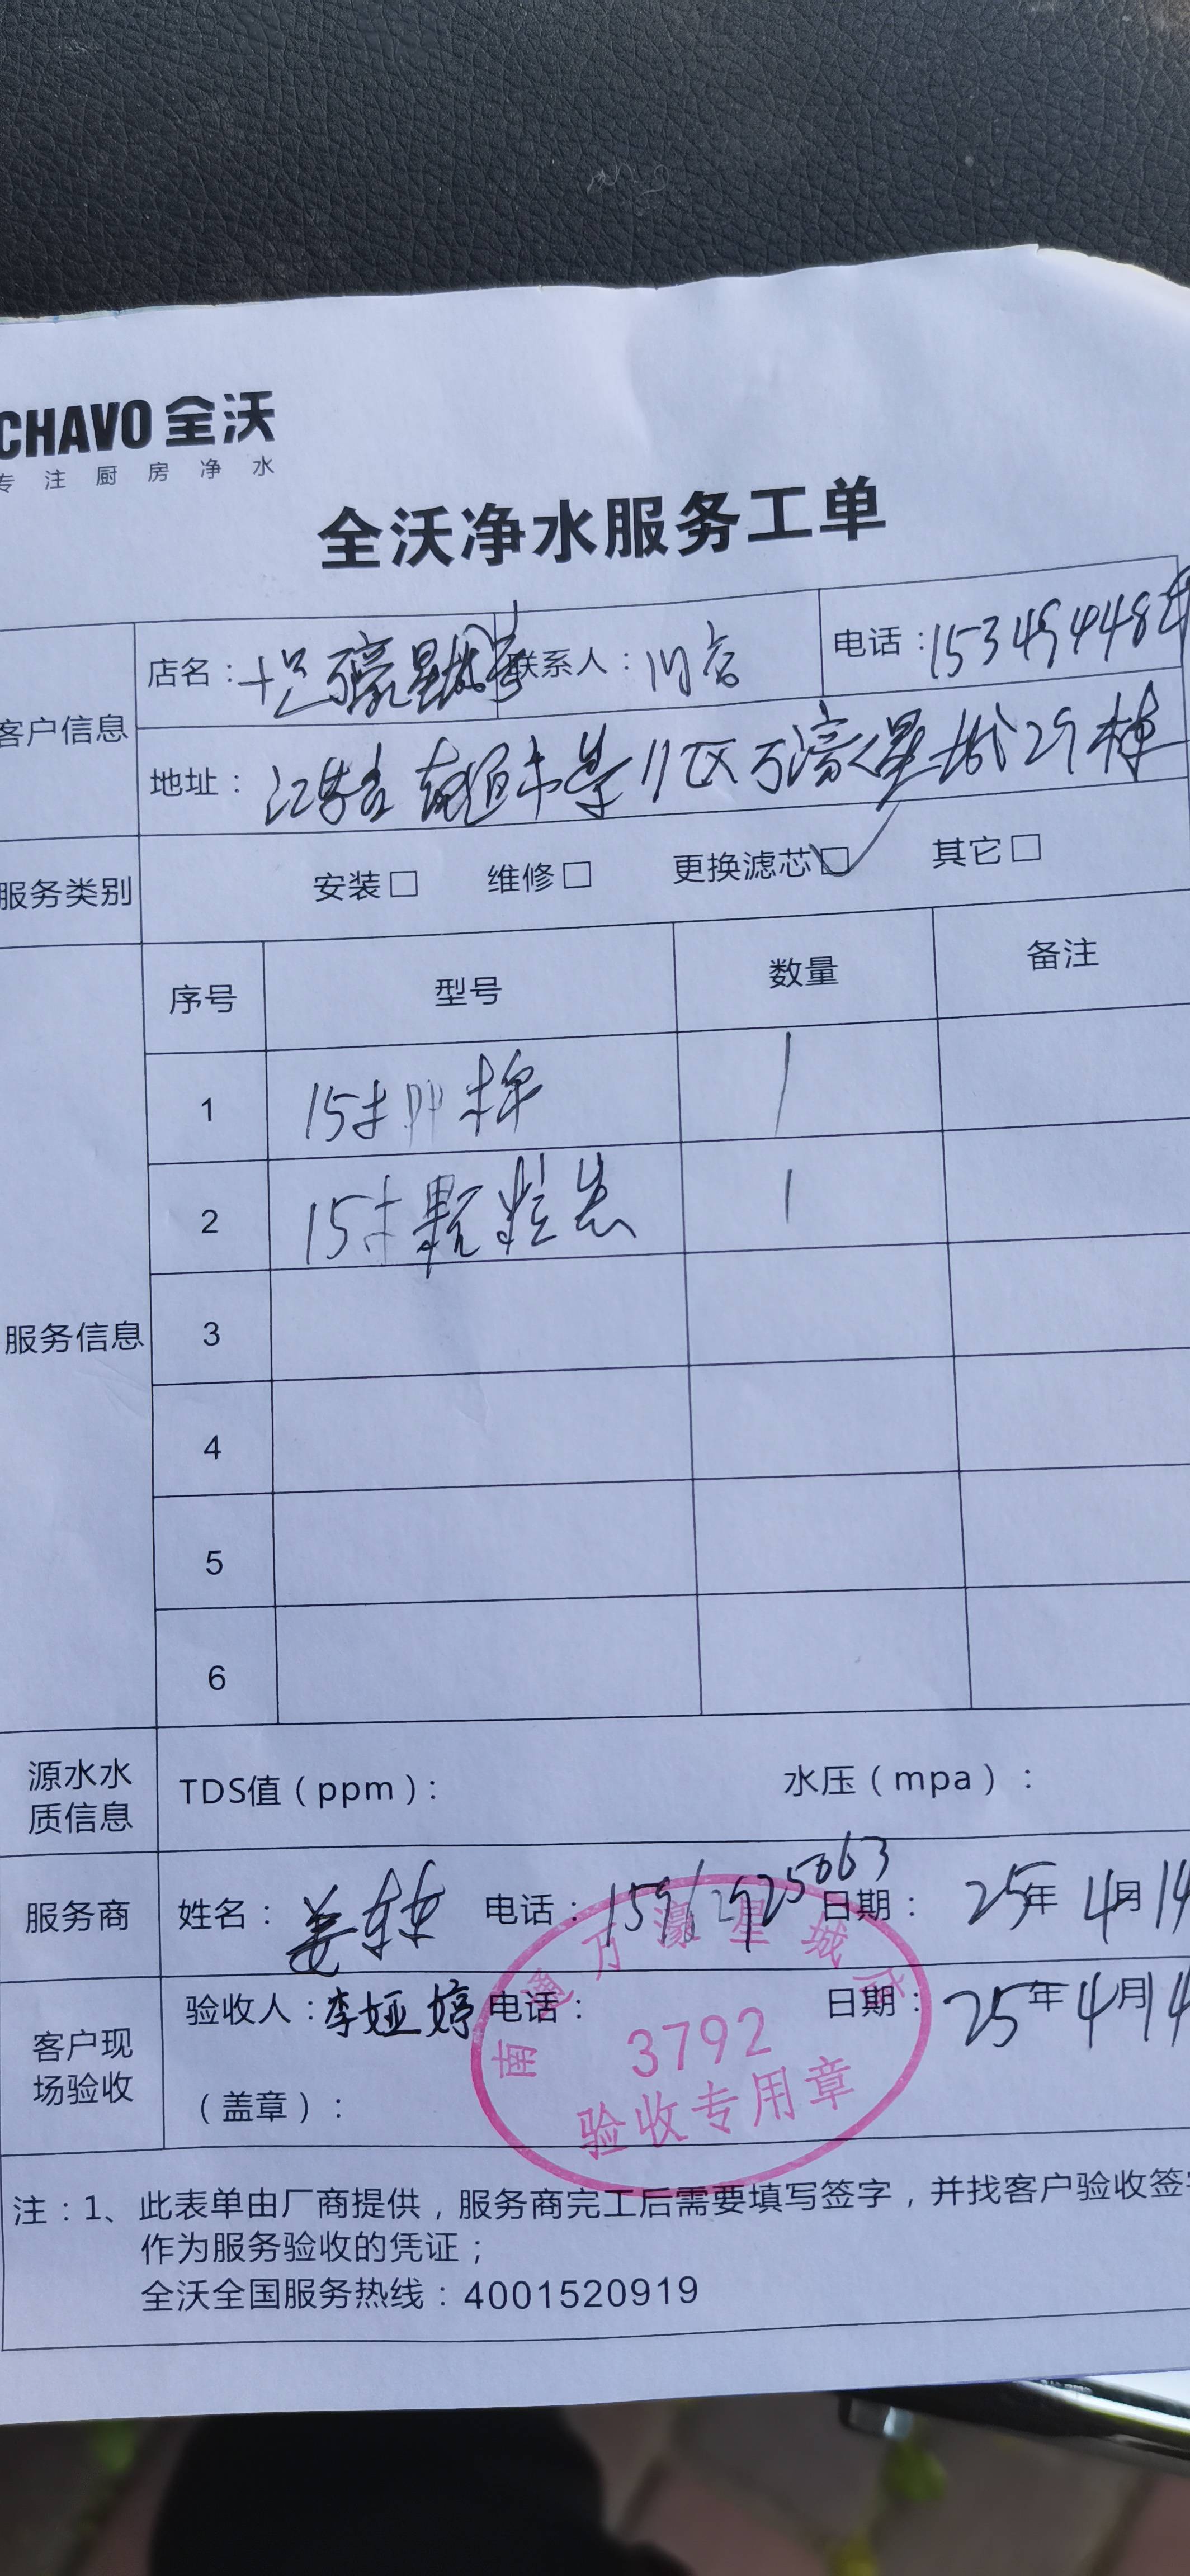 CHAVO 全沃
专注厨房净水
全沃净水服务工单
客户信息
店名： 万濠星城 联系人： 电话：153494484
地址： 江苏省南通市 万濠星城29栋
服务类别 安装□ 维修□ 更换滤芯□ 其它□
服务信息
序号 型号 数量 备注
1 15寸PP棉 1
2 15寸颗粒炭 1
3
4
5
6
源水水质信息 TDS值（ppm）： 水压（mpa）：
服务商 姓名：姜 电话：15962925063 日期：25年4月14
客户现场验收 验收人：李娅婷 电话： 日期：25年4月14
（盖章）：
南通万濠星城店
3792
验收专用章
注：1、此表单由厂商提供，服务商完工后需要填写签字，并找客户验收签字
作为服务验收的凭证；
全沃全国服务热线：4001520919